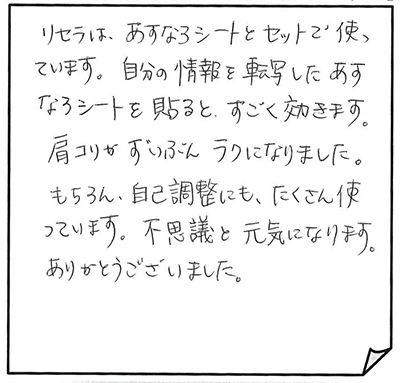 リセラは、あすなろシートとセットで使っ
ています。自分の情報を転写したあす
なろシートを貼ると、すごく効きます。
肩コリがずいぶんラクになりました。
もちろん、自己調整にも、たくさん使
っています。不思議と元気になります。
ありがとうございました。